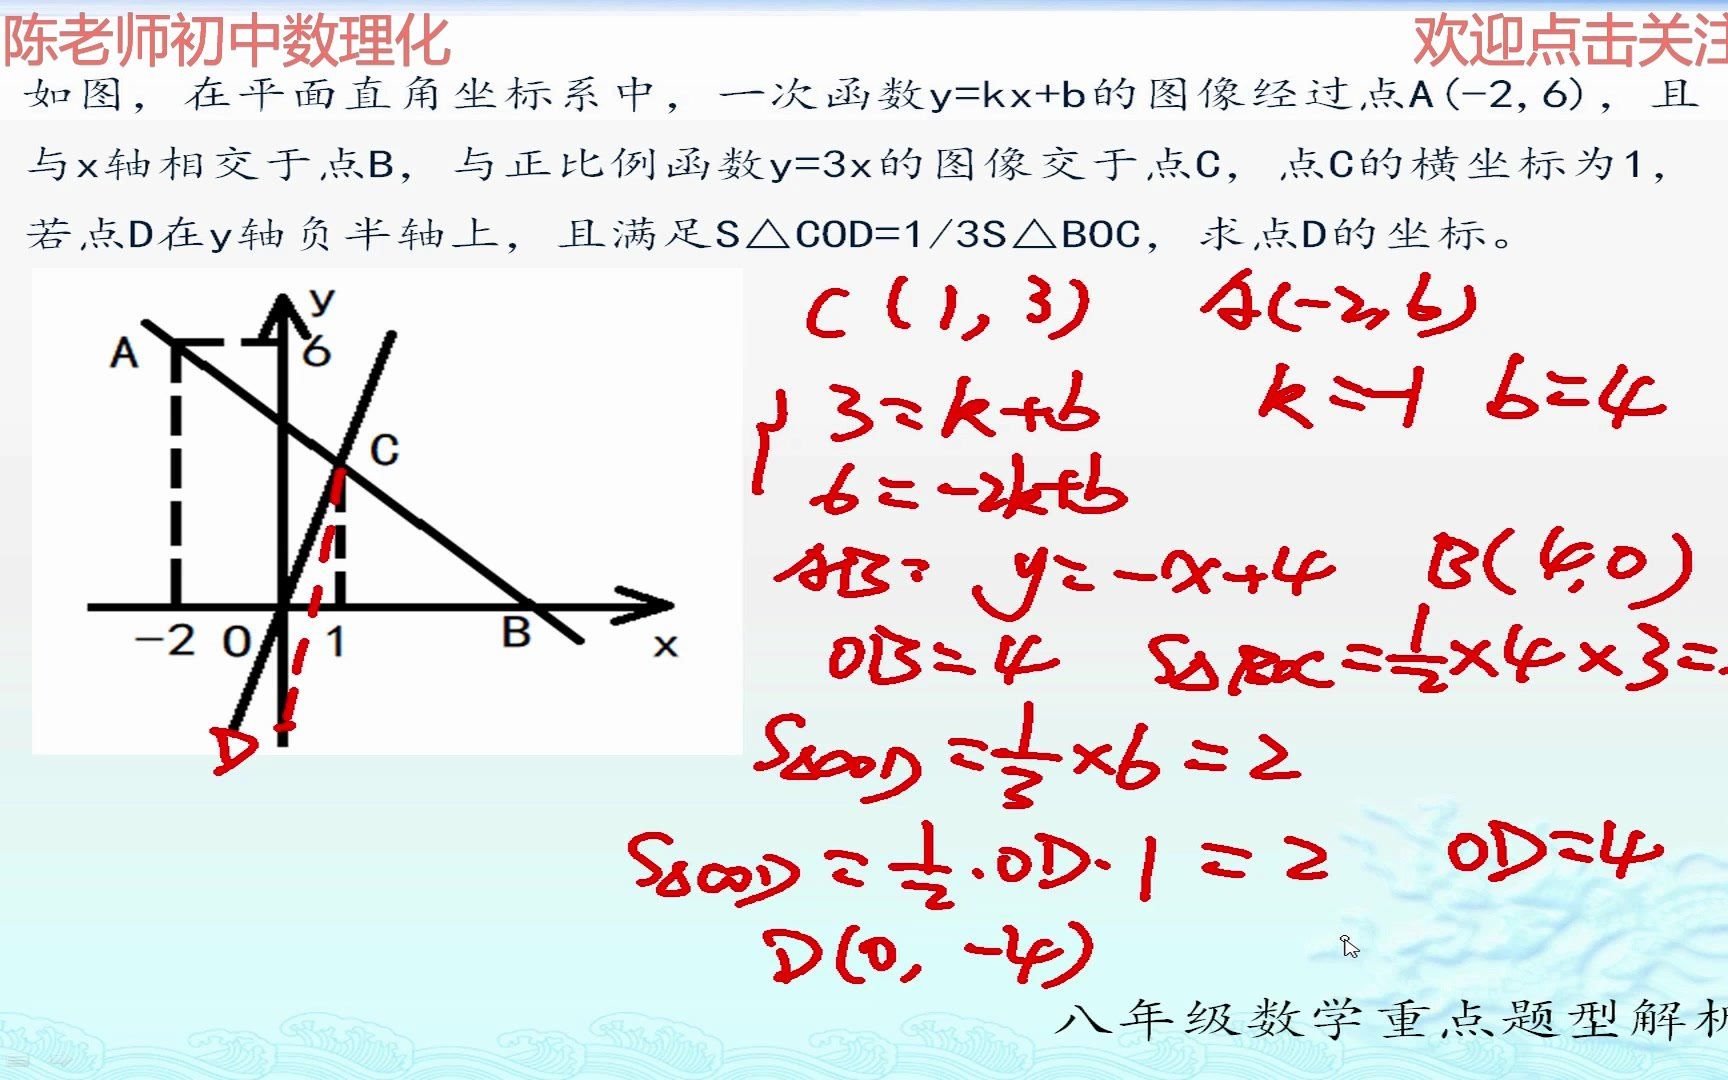 陈老师初中数理化
欢迎点击关注
如图，在平面直角坐标系中，一次函数y=kx+b的图像经过点A(-2,6)，且
与x轴相交于点B，与正比例函数y=3x的图像交于点C，点C的横坐标为1，
若点D在y轴负半轴上，且满足S△COD=1/3S△BOC，求点D的坐标。
y
A
6
C
-2
0
1
B
x
D
C(1,3) A(-2,6)
3=k+b k=-1 b=4
6=-2k+b
AB: y=-x+4 B(4,0)
OB=4 S△BOC=1/2×4×3=
S△COD=1/3×6=2
S△COD=1/2·OD·1=2 OD=4
D(0,-4)
八年级数学重点题型解析